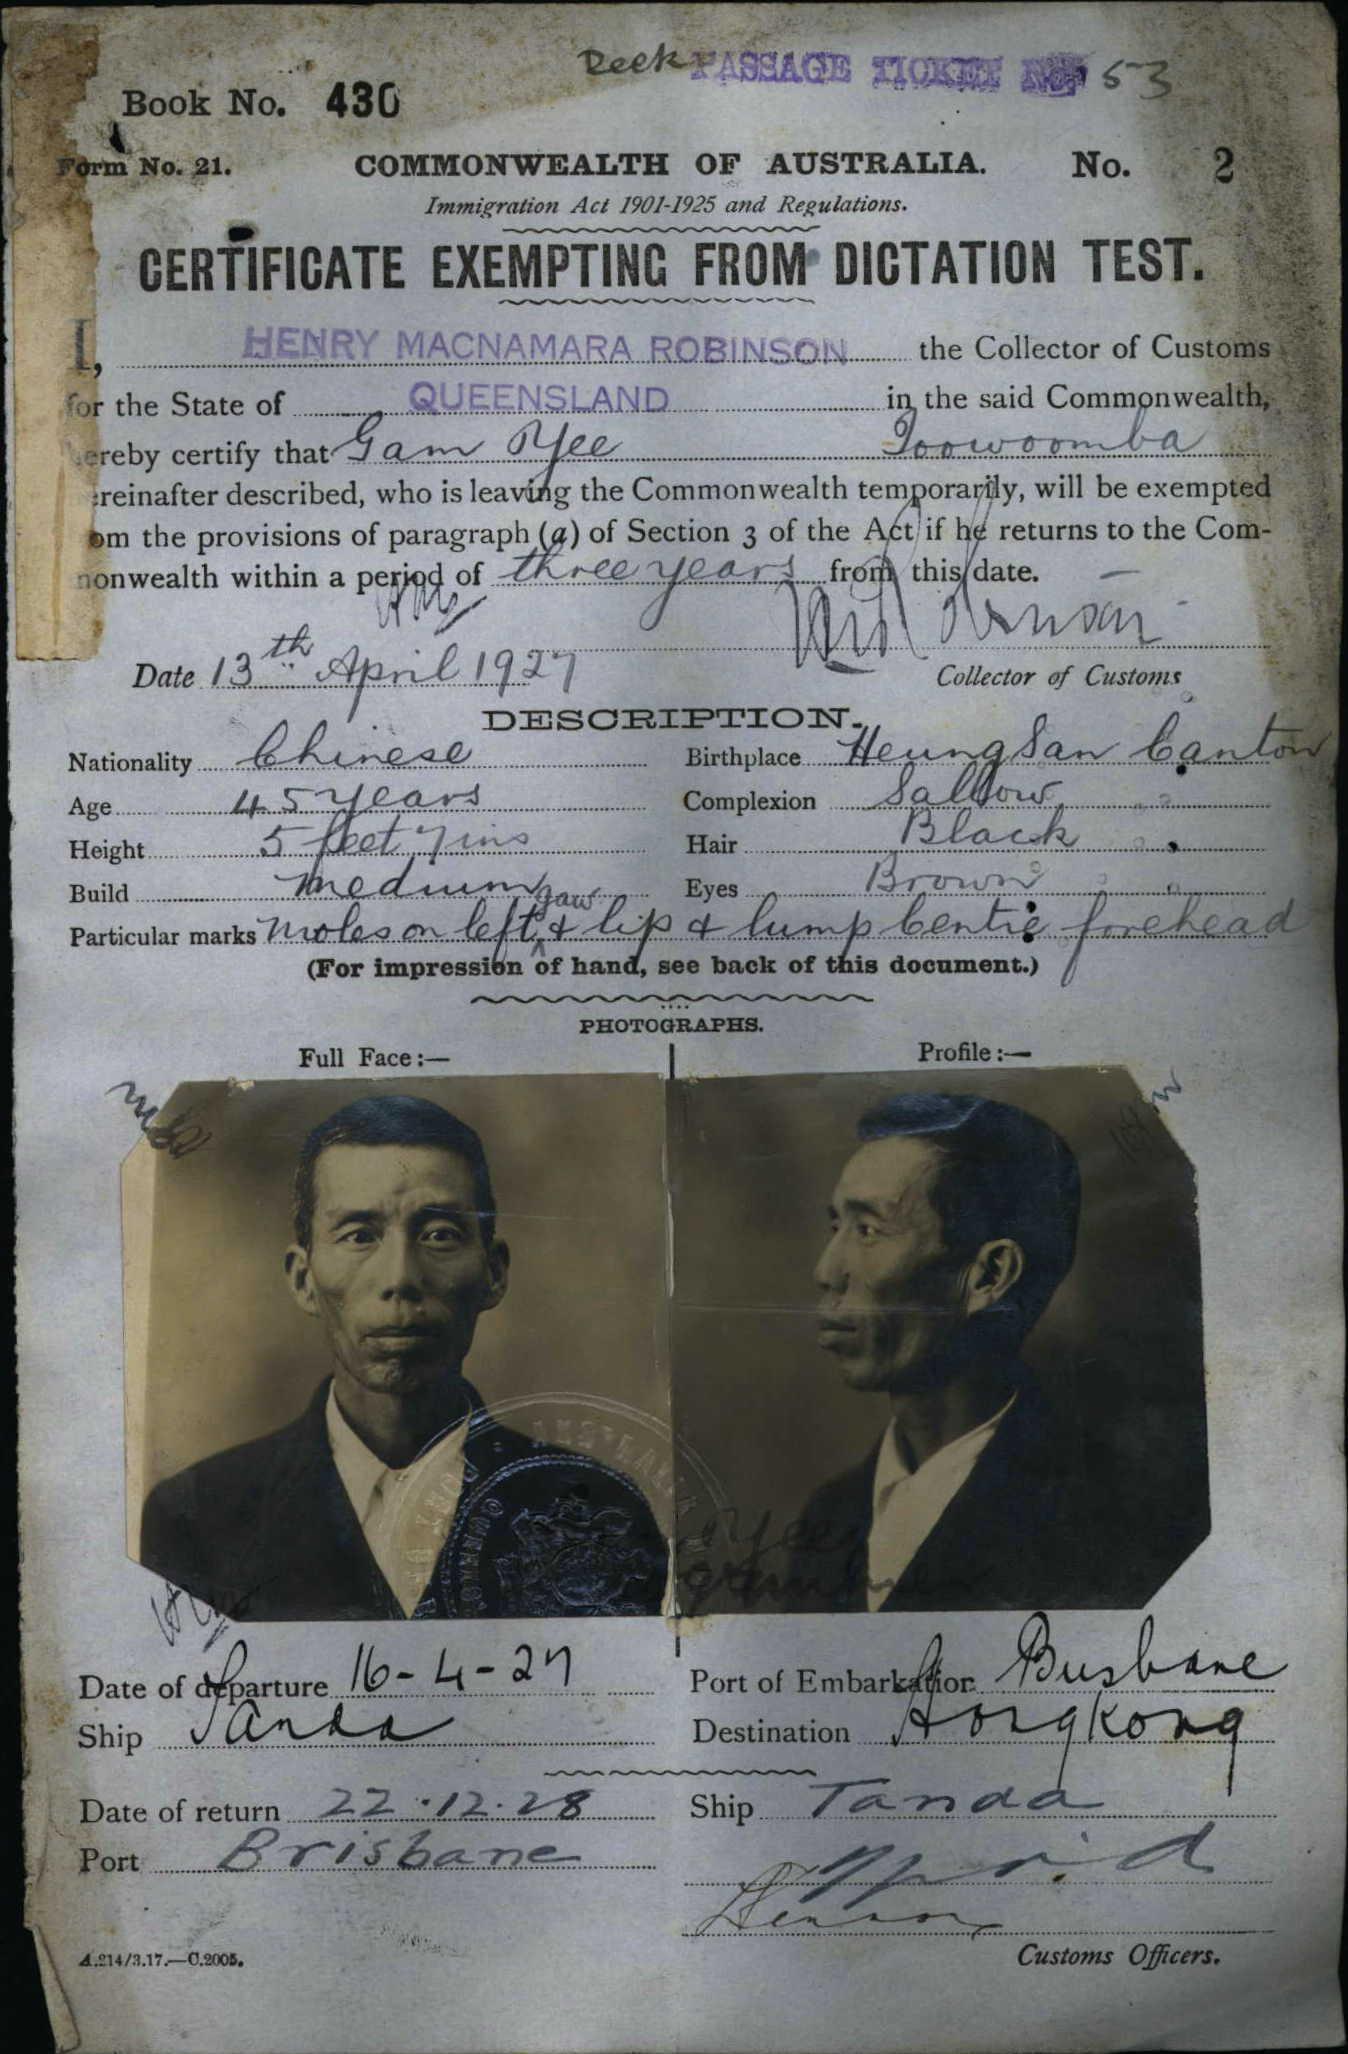 Deck PASSAGE TICKET No. 53
Book No. 430
Form No. 21. COMMONWEALTH OF AUSTRALIA. No. 2
Immigration Act 1901-1925 and Regulations.
CERTIFICATE EXEMPTING FROM DICTATION TEST.
I, HENRY MACNAMARA ROBINSON the Collector of Customs
for the State of QUEENSLAND in the said Commonwealth,
ereby certify that Gam Yee Toowoomba
ereinafter described, who is leaving the Commonwealth temporarily, will be exempted
om the provisions of paragraph (a) of Section 3 of the Act if he returns to the Com-
monwealth within a period of three years from this date.
Date 13th April 1927 Collector of Customs
DESCRIPTION.
Nationality Chinese Birthplace Heung San Canton
Age 45 years Complexion Sallow
Height 5 feet 7 ins Hair Black
Build medium Eyes Brown
Particular marks moles on left jaw & lip & lump centre forehead
(For impression of hand, see back of this document.)
PHOTOGRAPHS.
Full Face:— Profile:—
Yee
Date of departure 16-4-27 Port of Embarkation Brisbane
Ship Tanda Destination Hongkong
Date of return 22.12.28 Ship Tanda
Port Brisbane
A.214/3.17.—C.2005. Customs Officers.